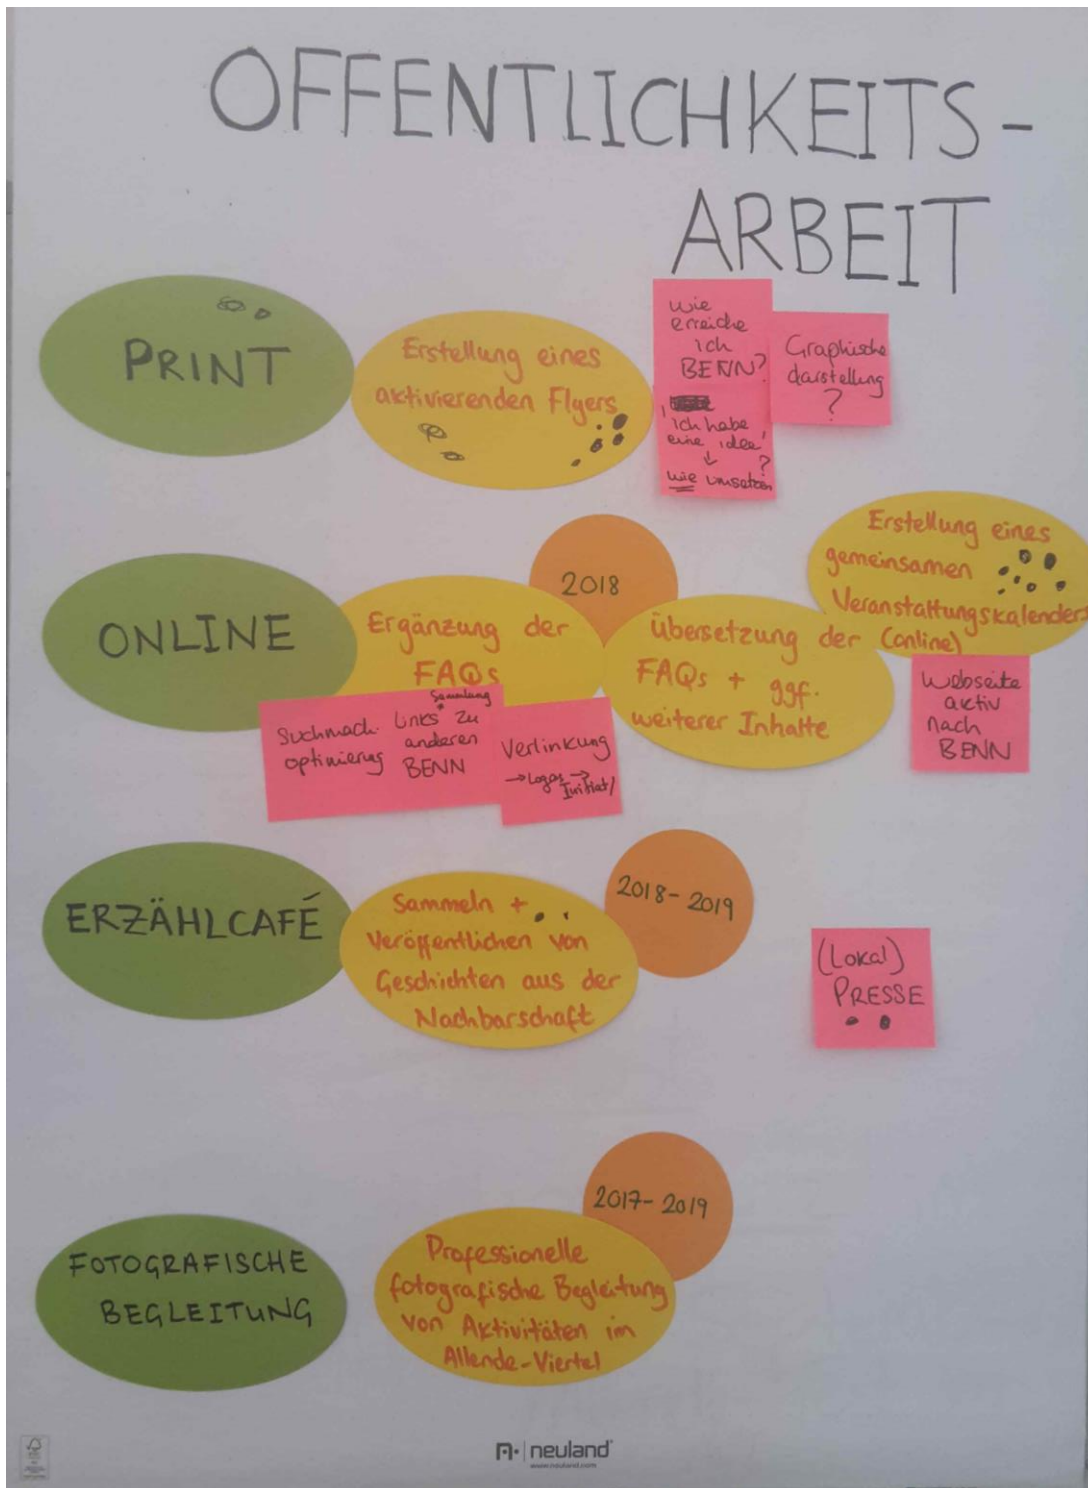 OFFENTLICHKEITS-
ARBEIT
PRINT
Erstellung eines
aktivierenden Flyers
wie
erreiche
ich
BENN?
'Ich habe
eine idee'
↓ ?
wie umsetzen
Graphische
darstellung
?
ONLINE
Ergänzung der
FAQs
2018
Übersetzung der
FAQs + ggf.
weiterer Inhalte
Erstellung eines
gemeinsamen
Veranstaltungskalenders
(online)
Suchmach.
optimierung
Sammlung
Links zu
anderen
BENN
Verlinkung
→ Logos →
Initiat/
Webseite
aktiv
nach
BENN
ERZÄHLCAFÉ
Sammeln +
Veröffentlichen von
Geschichten aus der
Nachbarschaft
2018-2019
(Lokal)
PRESSE
FOTOGRAFISCHE
BEGLEITUNG
Professionelle
fotografische Begleitung
von Aktivitäten im
Allende-Viertel
2017-2019
neuland
www.neuland.com